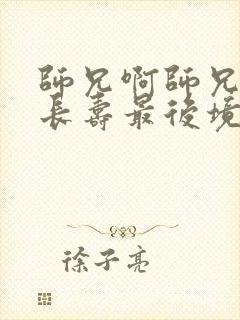 師兄啊師兄
長壽最後境
徐子亮